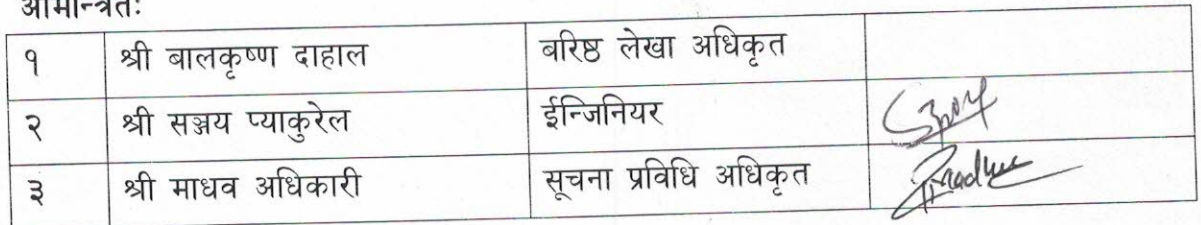 आमन्त्रितः
१ श्री बालकृष्ण दाहाल बरिष्ठ लेखा अधिकृत
२ श्री सञ्जय प्याकुरेल ईन्जिनियर
३ श्री माधव अधिकारी सूचना प्रविधि अधिकृत